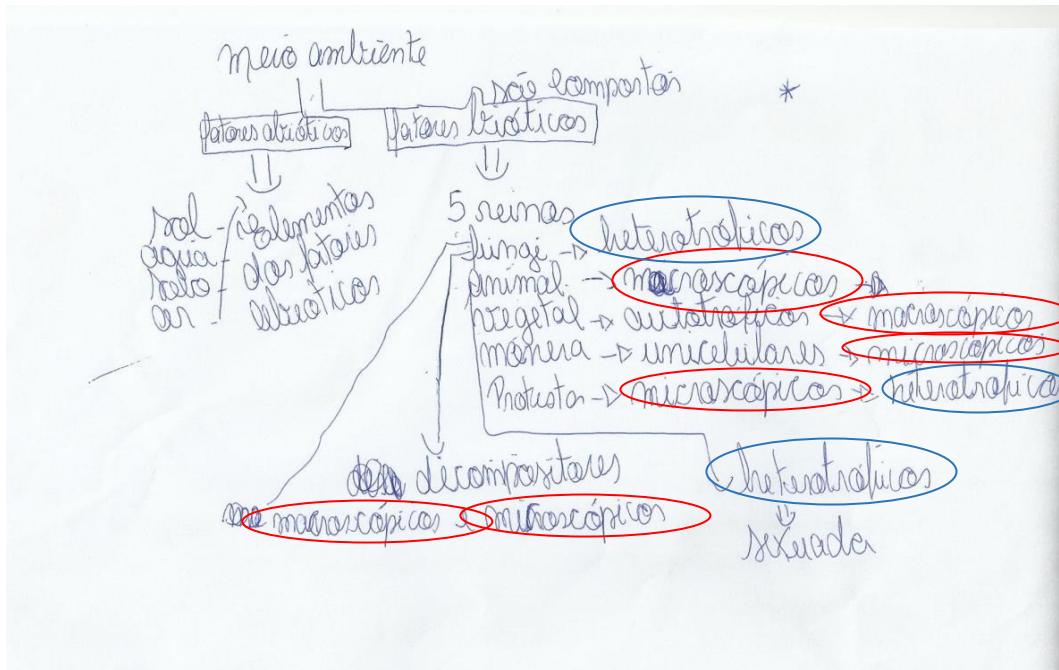 meio ambiente
são compostas *
fatores abióticos fatores bióticos
sol - elementos
água - dos fatores
solo - abióticos
ar -
5 reinos
fungi → heterotróficos
animal → macroscópicos →
vegetal → autotróficos → macroscópicos
monera → unicelulares → microscópicos
Protista → microscópicos → heterotrófico
decompositores
heterotróficos
macroscópicos e microscópicos
sexuada